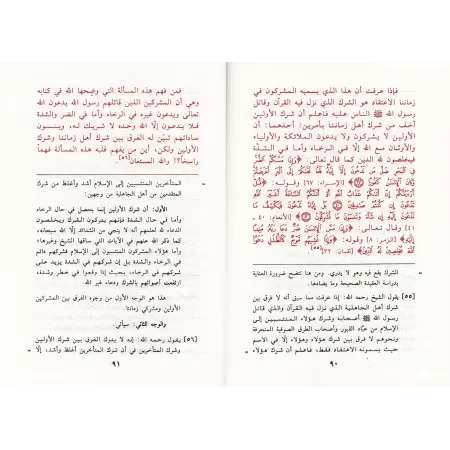 فإذا عرفت أن هذا الذي يسميه المشركون في
زماننا الاعتقاد هو الشرك الذي نزل فيه القرآن وقاتل
رسول الله ﷺ الناس عليه فاعلم أن شرك الأولين
أخف من شرك أهل زماننا بأمرين: أحدهما: أن
الأولين لا يشركون ولا يدعون الملائكة والأولياء
والأوثان مع الله إلّا في الرخاء، وأما في الشدة
فيخلصون لله الدين كما قال تعالى: ﴿وَإِذَا مَسَّكُمُ الضُّرُّ
فِي الْبَحْرِ ضَلَّ مَن تَدْعُونَ إِلَّا إِيَّاهُ فَلَمَّا نَجَّاكُمْ إِلَى الْبَرِّ أَعْرَضْتُمْ
وَكَانَ الْإِنسَانُ كَفُورًا﴾ [الإسراء: ٦٧] وقوله: ﴿قُلْ
إِيَّاهُ تَدْعُونَ فَيَكْشِفُ مَا تَدْعُونَ
إِلَيْهِ إِن شَاءَ وَتَنسَوْنَ مَا تُشْرِكُونَ﴾ [الأنعام: ٤٠ -
٤١] وقال تعالى:
[الزمر: ٨] وقوله: ﴿وَإِذَا غَشِيَهُم مَّوْجٌ كَالظُّلَلِ دَعَوُا
اللَّهَ مُخْلِصِينَ لَهُ الدِّينَ﴾ [لقمان: ٣٢]
الشرك يقع فيه وهو لا يدري. ومن هنا تتضح ضرورة العناية
بدراسة العقيدة الصحيحة وما يضادها.
[٥٥] يقول الشيخ رحمه الله: إذا عرفت مما سبق أنه لا فرق بين
شرك أهل الجاهلية الذي نزل فيه القرآن والذي قاتل
رسول الله ﷺ أصحابه وشرك هؤلاء المنتسبين إلى
الإسلام من عبّاد القبور وأصحاب الطرق الصوفية المنحرفة
ونحوهم لا فرق بين شرك هؤلاء وهؤلاء إلّا في الاسم
حيث يسمونه الاعتقاد فقط، فاعلم أن شرك هؤلاء
٩٠
فمن فهم هذه المسألة التي وضحها الله في كتابه
وهي أن المشركين الذين قاتلهم رسول الله يدعون الله
تعالى ويدعون غيره في الرخاء، وأما في الضر والشدة
فلا يدعون إلّا الله وحده لا شريك له، وينسون
ساداتهم تبيّن له الفرق بين شرك أهل زماننا وشرك
الأولين ولكن، أين من يفهم قلبه هذه المسألة فهماً
راسخاً؟! والله المستعان[٥٦].
المتأخرين المنتسبين إلى الإسلام أشد وأغلظ من شرك
المتقدمين من أهل الجاهلية من وجهين:
الأول: أن شرك الأولين إنما يحصل في حال الرخاء
وأما في حال الشدة فإنهم يتركون الشرك ويخلصون
الدعاء لله لعلمهم أنه لا ينجي من الشدائد إلّا الله سبحانه،
كما ذكر الله عنهم في الآيات التي ساقها الشيخ وغيرها؛
وأما هؤلاء المشركون المنتسبون إلى الإسلام فشركهم دائم
في الرخاء والشدة بل إن شركهم في الشدة يزيد على
شركهم في الرخاء، بحيث إذا وقعوا في خطر وشدة،
ارتفعت أصواتهم بالشرك ودعاء غير الله.
هذا هو الوجه الأول من وجوه الفرق بين المشركين
الأولين ومشركي زماننا.
والوجه الثاني: سيأتي.
[٥٦] يقول رحمه الله: إنه لا يدرك الفرق بين شرك الأولين
وشرك المتأخرين في أن شرك المتأخرين أغلظ وأشد، إلّا
٩١